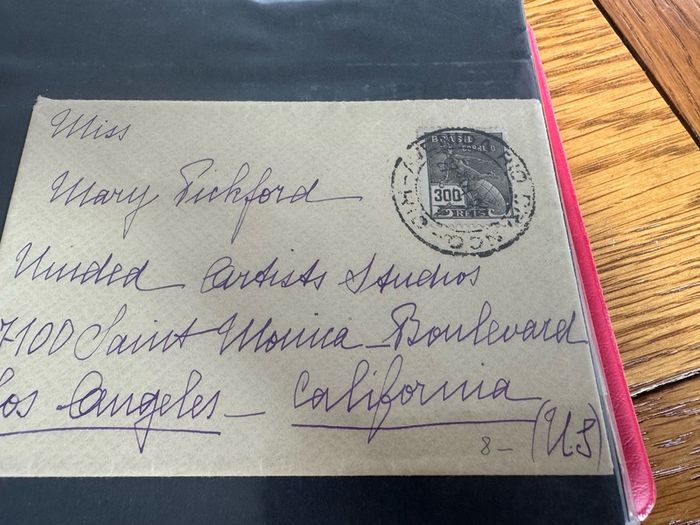 Miss
Mary Pickford
United Artists Studios
7100 Saint Monica Boulevard
Los Angeles - California
(U.S)
8-
BRASIL
CORREIO
300
REIS